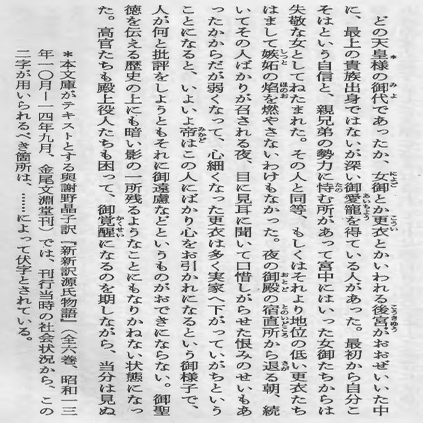 どの天皇様の御代であったか、女御とか更衣とかいわれる後宮がおおぜいいた中
に、最上の貴族出身ではないが深い御愛寵を得ている人があった。最初から自分こ
そはという自信と、親兄弟の勢力に恃む所があって宮中にはいった女御たちからは
失敬な女としてねたまれた。その人と同等、もしくはそれより地位の低い更衣たち
はまして嫉妬の焔を燃やさないわけもなかった。夜の御殿の宿直所から退る朝、続
いてその人ばかりが召される夜、目に見耳に聞いて口惜しがらせた恨みのせいもあ
ったかからだが弱くなって、心細くなった更衣は多く実家へ下がっていがちという
ことになると、いよいよ帝はこの人にばかり心をお引かれになるという御様子で、
人が何と批評をしようともそれに御遠慮などというものがおできにならない。御聖
徳を伝える歴史の上にも暗い影の一所残るようなことにもなりかねない状態になっ
た。高官たちも殿上役人たちも困って、御覚醒になるのを期しながら、当分は見ぬ
＊本文庫がテキストとする與謝野晶子訳『新新訳源氏物語』（全六巻、昭和一三
年一〇月―一四年九月、金尾文淵堂刊）では、刊行当時の社会状況から、この
二字が用いられるべき箇所は、……によって伏字とされている。